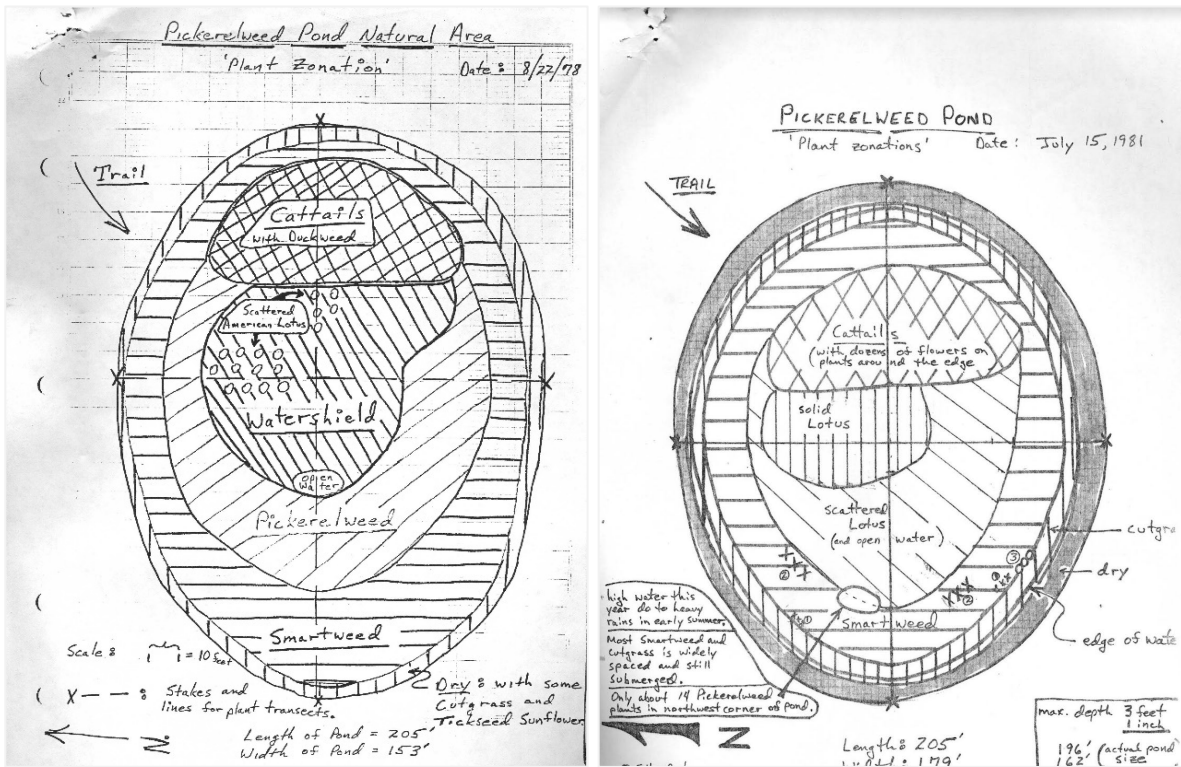 Pickerelweed Pond Natural Area
'Plant Zonation'
Date: 8/22/78
Trail
Cattails
with Duckweed
Scattered
American Lotus
Watershield
open
water
Pickerelweed
Smartweed
Scale: = 10 feet
X — — : Stakes and
lines for plant transects.
Dry: with some
Cutgrass and
Tickseed Sunflower.
N
Length of Pond = 205'
Width of Pond = 153'
PICKERELWEED POND
'Plant zonations'
Date: July 15, 1981
TRAIL
Cattails
(with dozens of flowers on
plants around the edge
solid
Lotus
scattered
Lotus
(and open water)
cutgra
dry
edge of wate
Smartweed
2
1
1
2
3
high water this
year do to heavy
rains in early summer.
Most Smartweed and
cutgrass is widely
spaced and still
submerged.
Only about 14 Pickerelweed
plants in northwest corner of pond.
N
Length: 205'
Width: 179'
max. depth 3 feet
1 inch
196' (actual pond
162' size